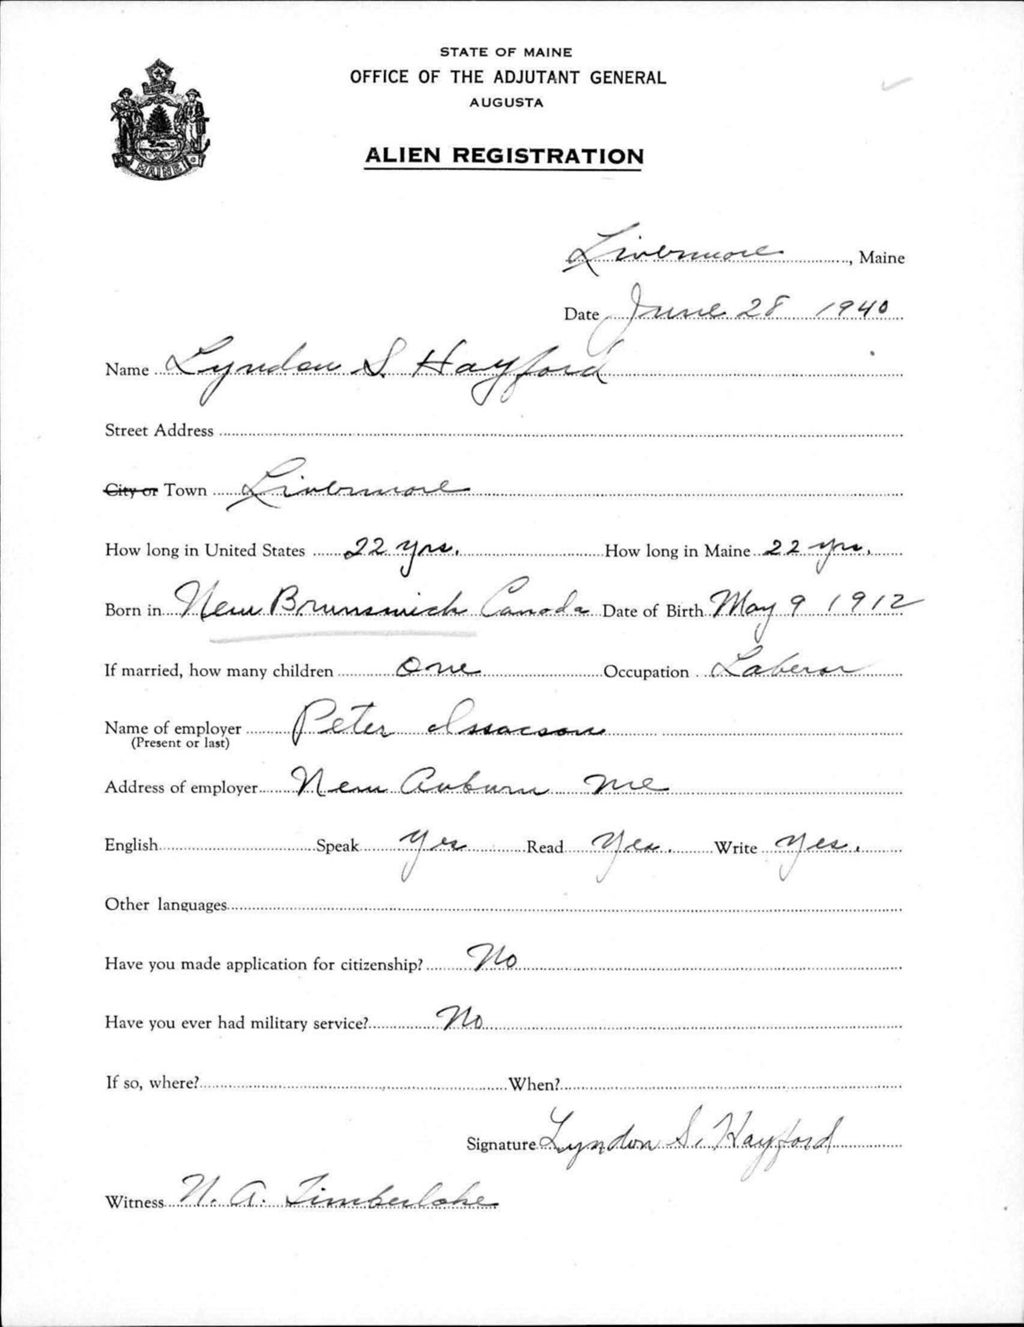 STATE OF MAINE
OFFICE OF THE ADJUTANT GENERAL
AUGUSTA
ALIEN REGISTRATION
MAINE
Livermore, Maine
Date June 28 1940
Name Lyndon S. Hayford
Street Address
City or Town Livermore
How long in United States 22 yrs. How long in Maine 22 yrs.
Born in New Brunswick Canada Date of Birth May 9 1912
If married, how many children One Occupation Laberor
Name of employer Peter Issacson
(Present or last)
Address of employer New Auburn Me
English Speak Yes Read Yes. Write Yes.
Other languages
Have you made application for citizenship? No
Have you ever had military service? No
If so, where? When?
Signature Lyndon S. Hayford
Witness N. A. Timberlake